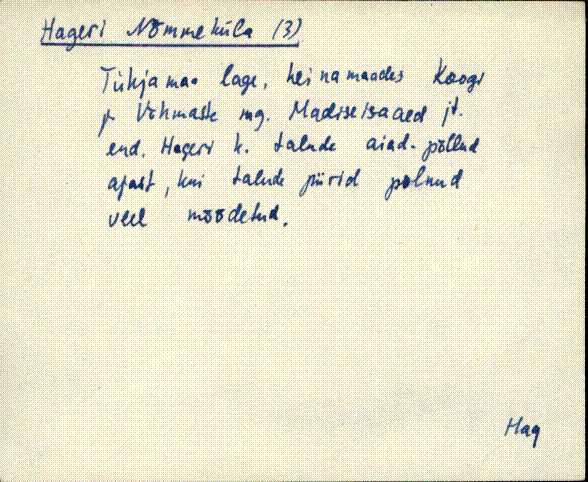 Hageri Nõmmeküla (3)
Tühjamaa lage, heinamaades Koogi
ja Võhmaste mg. Madiseisaaed jt.
end. Hageri k. talude aiad-põllud
ajast, kui talude piirid polnud
veel mõõdetud.
Hag